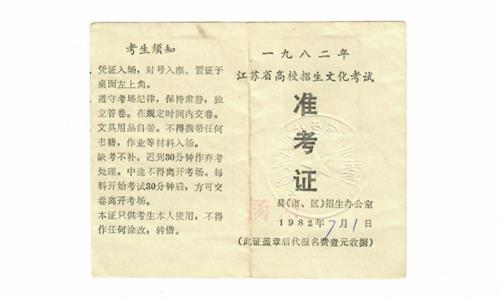 考生须知
凭证入场，对号入座。置证于
桌面左上角。
遵守考场纪律，保持肃静，独
立答卷。在规定时间内交卷。
文具用品自备。不得携带任何
书籍，作业等材料入场。
缺考不补。迟到30分钟作弃考
处理。中途不得离开考场。每
科开始考试30分钟后，方可交
卷离开考场。
本证只供考生本人使用，不得
作任何涂改，转借。
一九八二年
江苏省高校招生文化考试
准
考
证
县(市、区)招生办公室
1982年7月1日
(此证盖章后代报名费壹元收据)